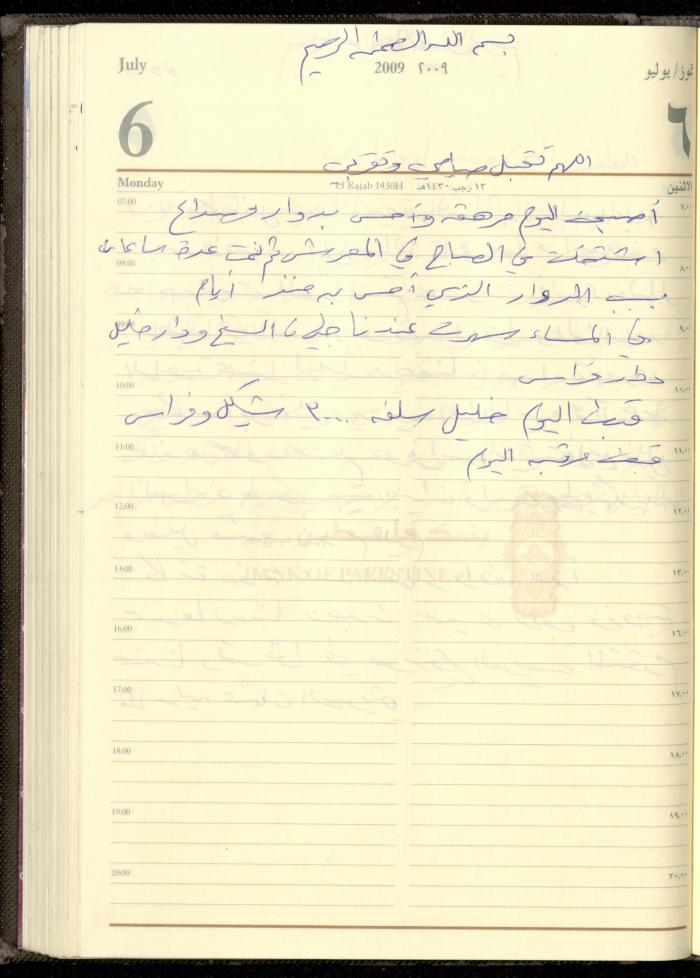 بسم الله الرحمن الرحيم
July
2009 ٢٠٠٩
تموز/يوليو
6
٦
اللهم تقبل صيامي وتقربي
Monday
13 Rajab 1430H
١٣ رجب ١٤٣٠هـ
الاثنين
07:00 ٧،٠٠
أصبحت اليوم مرهقه وأحس بدوار وصداع
اشتغلت في الصباح في المفرش ثم نمت عدة ساعات
08:00 ٨،٠٠
بسبب الدوار الذي أحس به منذ أيام
في المساء سهرت عندنا الشيخ ودار خليل
09:00 ٩،٠٠
ودار فراس
10:00 ١٠،٠٠
قبض اليوم خليل سلفه ٣٠٠٠ شيكل وفراس
11:00 ١١،٠٠
قبض مرتبه اليوم
12:00 ١٢،٠٠
BANK OF PALESTINE P.L.C
13:00 ١٣،٠٠
16:00 ١٦،٠٠
17:00 ١٧،٠٠
18:00 ١٨،٠٠
19:00 ١٩،٠٠
20:00 ٢٠،٠٠